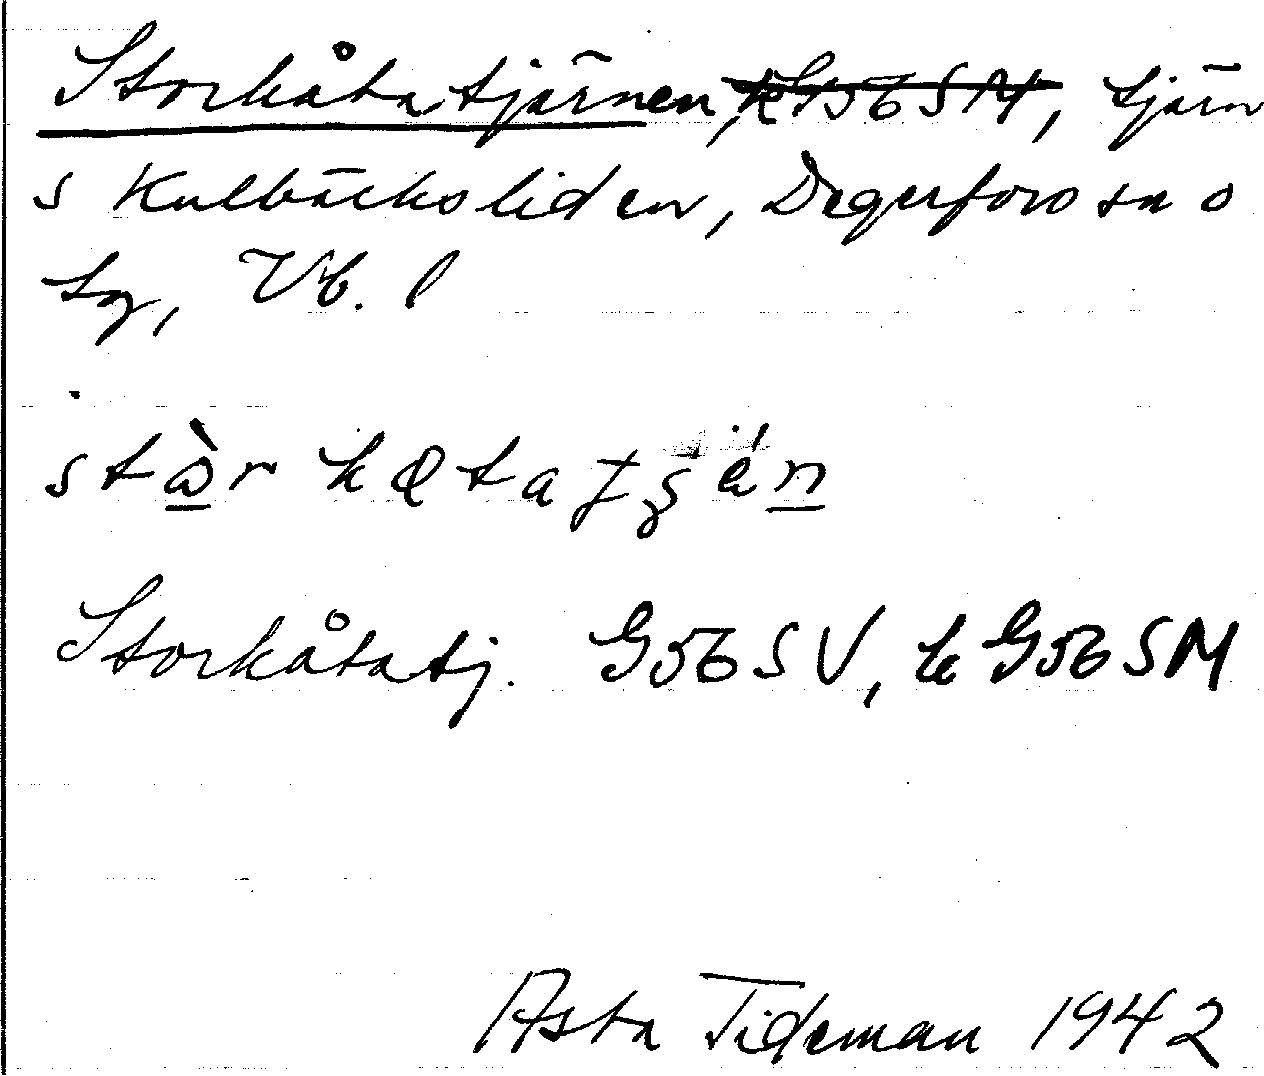 Storkåtatjärnen, k G56SM, tjärn
s Kulbäcksliden, Degerfors sn o
tg, Vb. l
stɷ̀r kætatʂén
Storkåtatj. G56SV, k G56SM
Asta Tideman 1942